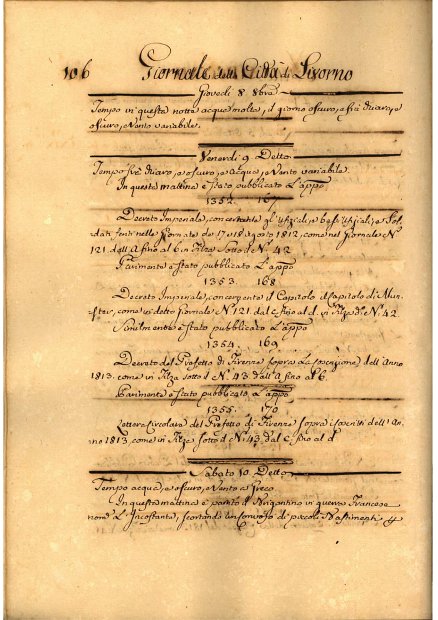 106 Giornale della Città di Livorno
Giovedì 8 8bre
Tempo in questa notte acque molta, il giorno oscuro, e fra chiaro, e
oscuro, e Vento variabile.
Venerdì 9 Detto
Tempo frà chiaro, e oscuro, e Acqua, e Vento variabile.
In questa mattina è stato pubblicato L'appo
1352. 167
Decreto Imperiale, concernente gl'Ufiziali, e bassi Ufiziali, e Sol-
dati feriti nelle Giornate de 17 e 18 agosto 1812, come nel Giornale No
121. dall A fino al 6. in Filza Sotto il No. 42
Parimente è stato pubblicato L'appo
1353. 168
Decreto Imperiale, concernente il Capitolo di Mun-
ster, come in detto Giornale No 121. dal c fino al d. in Filza di No. 42
Similmente è stato pubblicato L'appo
1354. 169
Decreto del Prefetto di Firenze sopra la Coscrizione dell'Anno
1813. come in Filza sotto il No. 43 dall'A fino al 6
Parimente è stato pubblicato L'appo
1355. 170
Lettera Circolare del Prefetto di Firenze sopra i Coscritti dell'An-
no 1813 come in Filza sotto il No 43, dal C fino al d
Sabato 10. Detto
Tempo acqua, e oscuro, e Vento a Greco
In questa mattina è partito il Brigantino in guerra Francese
nom. L'Incostante, scortando un Convojo di piccoli Bastimenti